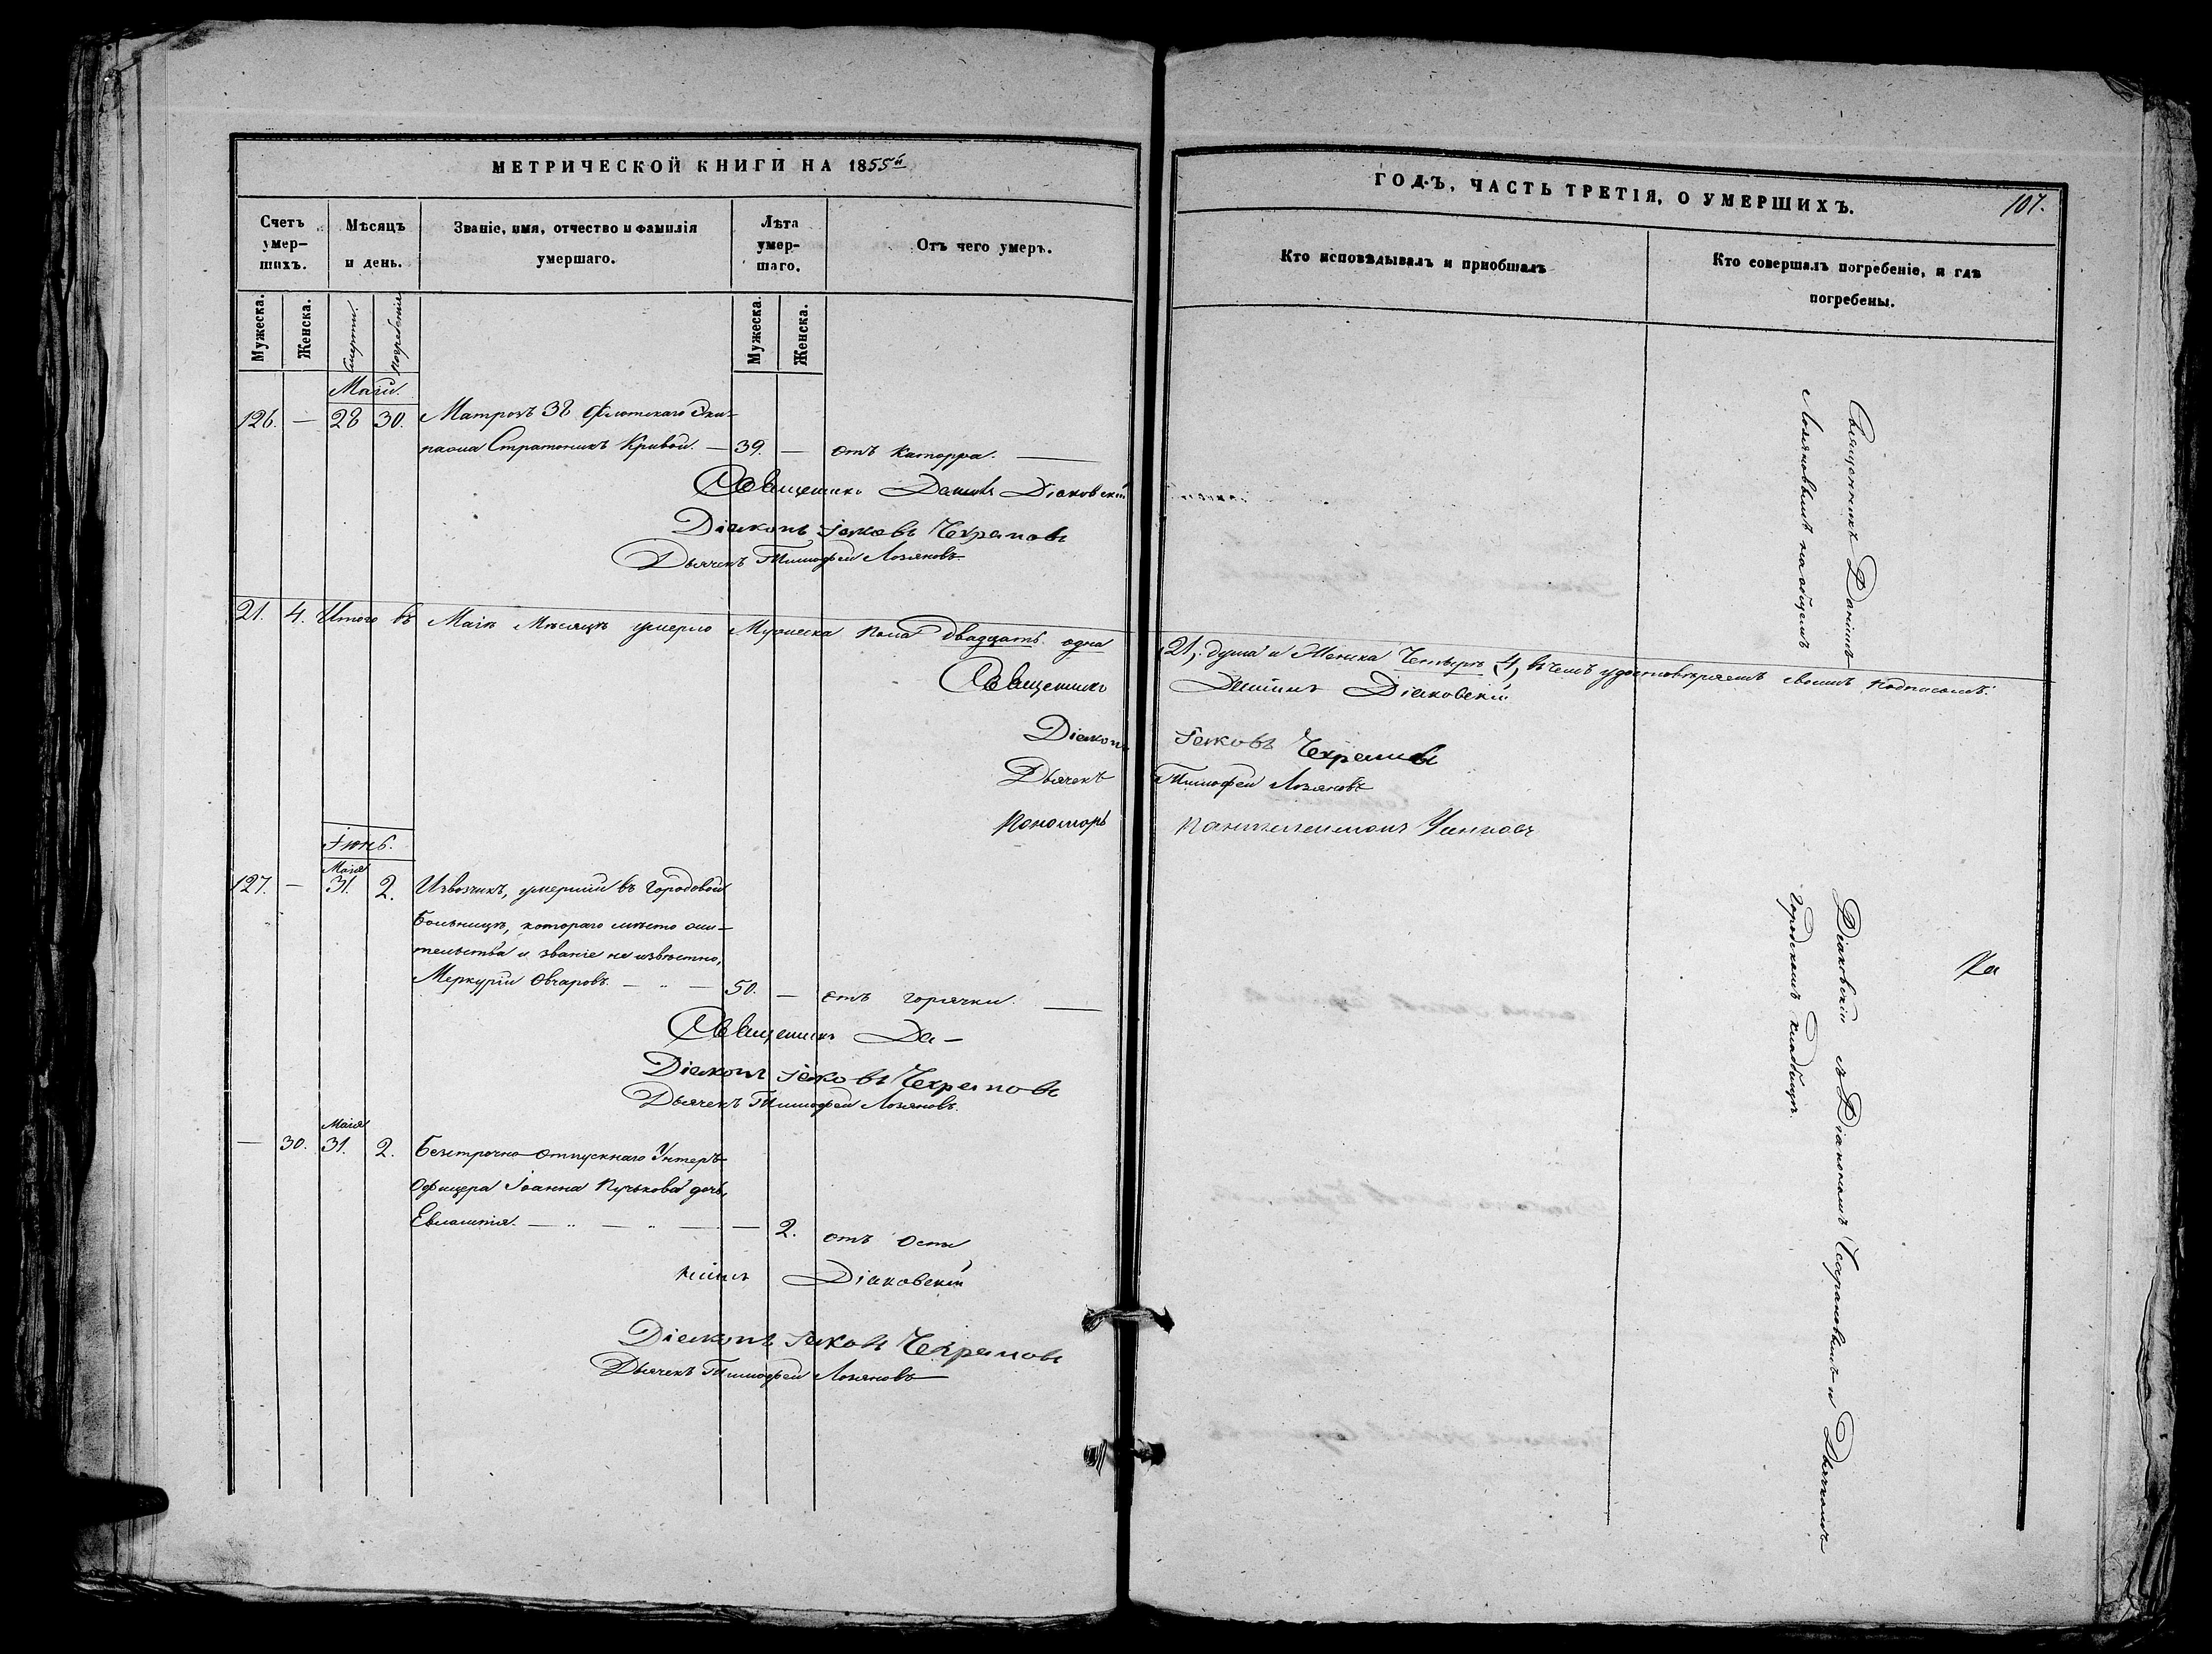 МЕТРИЧЕСКОЙ КНИГИ НА 1855й
Счетъ умер-шихъ.
Мѣсяцъ и день.
Званіе, имя, отчество и фамилія умершаго.
Лѣта умер-шаго.
Отъ чего умеръ.
Мужеска.
Женска.
Смерти.
Погребенія
Мужеска.
Женска.
Маій.
126. — 28 30. Матрозъ 38 Флотскаго Эки-
пажа Стратоникъ Кривой. — 39. — отъ Катарра. —
Священникъ Даніилъ Діаковскій
Діаконъ Іаковъ Чехрановъ
Дьячекъ Тимофей Лозяновъ.
21. 4. Итого въ Маіѣ Мѣсяцѣ умерло Мужеска пола двадцать одна
Священникъ
Діаконъ
Дьячекъ
Пономарь
Іюнь.
Маія
127. — 31. 2. Извозчикъ, умершій въ Городовой
Больницѣ, котораго мѣсто жи-
тельства и званіе не извѣстно,
Меркурій Овчаровъ. — „ — 50. — отъ горячки. —
Священникъ Да-
Діаконъ Іаковъ Чехрановъ
Дьячекъ Тимофей Лозяновъ.
Маія
— 30. 31. 2. Безсрочно-отпускнаго Унтеръ-
Офицера Іоанна Пучкова дочь,
Евлампія. — „ — „ — — 2. отъ Оспы
ніилъ Діаковскій
Діаконъ Іаковъ Чехрановъ
Дьячекъ Тимофей Лозяновъ
ГОДЪ, ЧАСТЬ ТРЕТІЯ, О УМЕРШИХЪ.
107.
Кто исповѣдывалъ и пріобщалъ
Кто совершалъ погребеніе, и гдѣ погребены.
(21), душа и Женска Четыре (4), въ чемъ удостовѣряемъ своимъ подписомъ:
Даніилъ Діаковскій
Іаковъ Чехрановъ
Тимофей Лозяновъ
Священникъ Даніилъ
Діаковскій съ Діакономъ Чехрановымъ и Дьячкомъ
Лозяновымъ на общемъ
Городскомъ кладбищѣ.